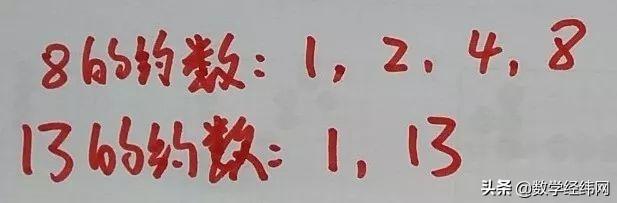 8的约数：1，2，4，8
13的约数：1，13
头条 @数学经纬网